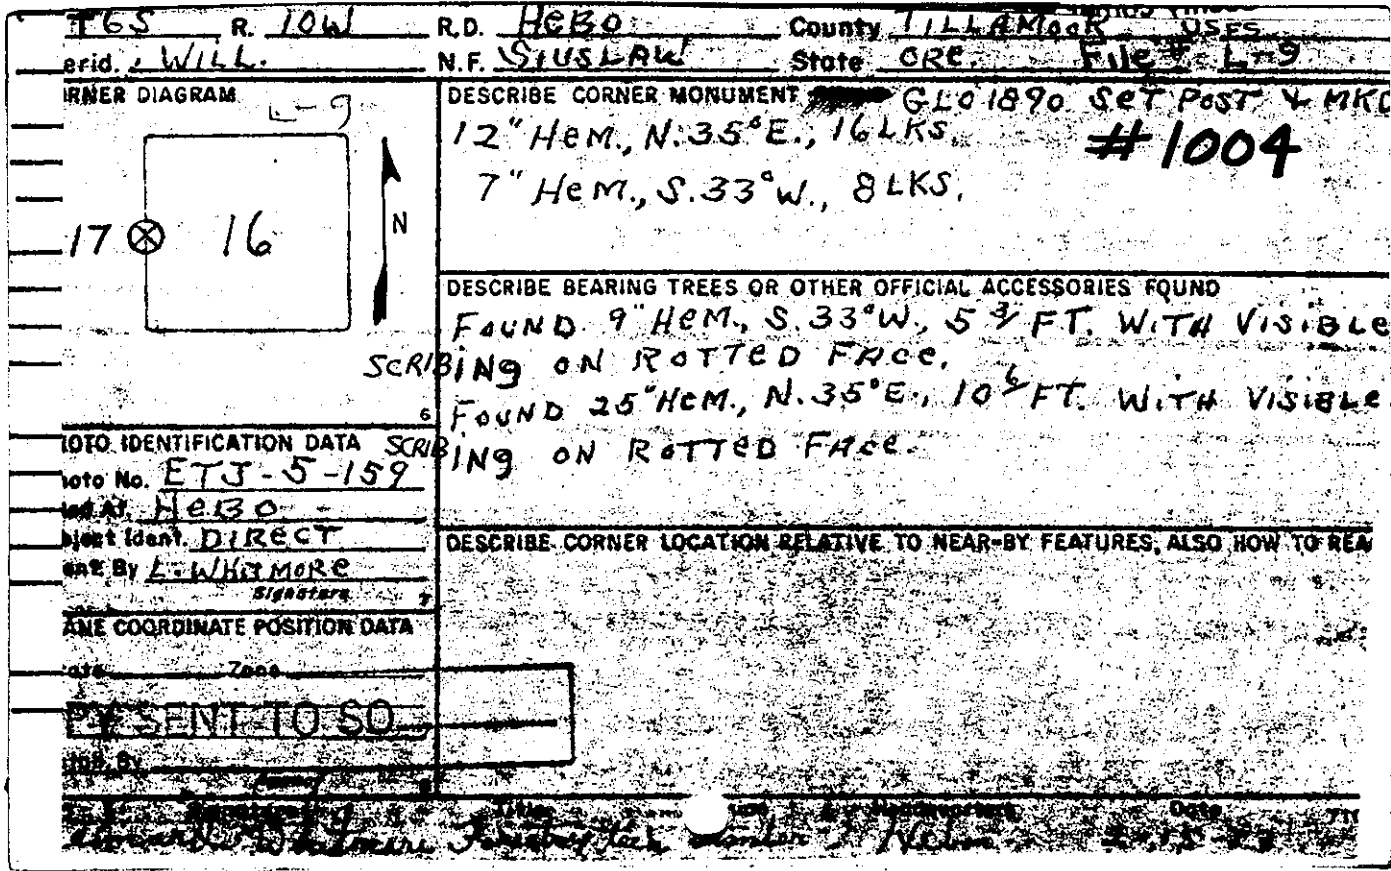 T6S R. 10W R.D. HEBO County TILLAMOOK USFS
erid. WILL. N.F. SIUSLAW State ORE. File # L-9
RNER DIAGRAM L-9
17 16 N
6
DESCRIBE CORNER MONUMENT GLO 1890 SET POST & MKD
12" HEM., N. 35° E., 16 LKS.
#1004
7" HEM., S. 33° W., 8 LKS.
DESCRIBE BEARING TREES OR OTHER OFFICIAL ACCESSORIES FOUND
FOUND 9" HEM., S. 33° W., 5 3/ FT. WITH VISIBLE
SCRIBING ON ROTTED FACE.
FOUND 25" HEM., N. 35° E., 10 6/ FT. WITH VISIBLE
SCRIBING ON ROTTED FACE.
OTO IDENTIFICATION DATA
hoto No. ETJ-5-159
At. HEBO
bject Ident. DIRECT
ent By L. WHITMORE
Signature 7
ANE COORDINATE POSITION DATA
Zone
PY SENT TO SO
By
DESCRIBE CORNER LOCATION RELATIVE TO NEAR-BY FEATURES, ALSO HOW TO REA
Title Headquarters Date
Whitmore Forestry Tech